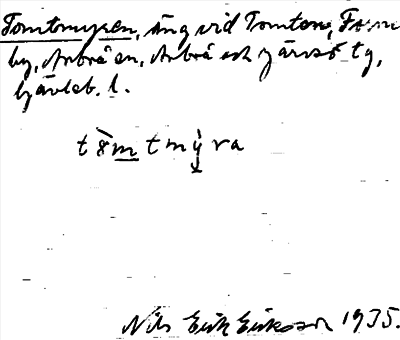 Tomtmyren, äng vid Tomten, Forne
by, Arbrå sn, Arbrå och Järvsö tg,
Gävleb. l.
t m t m y r a
Nils Erik Eriksson 1935.